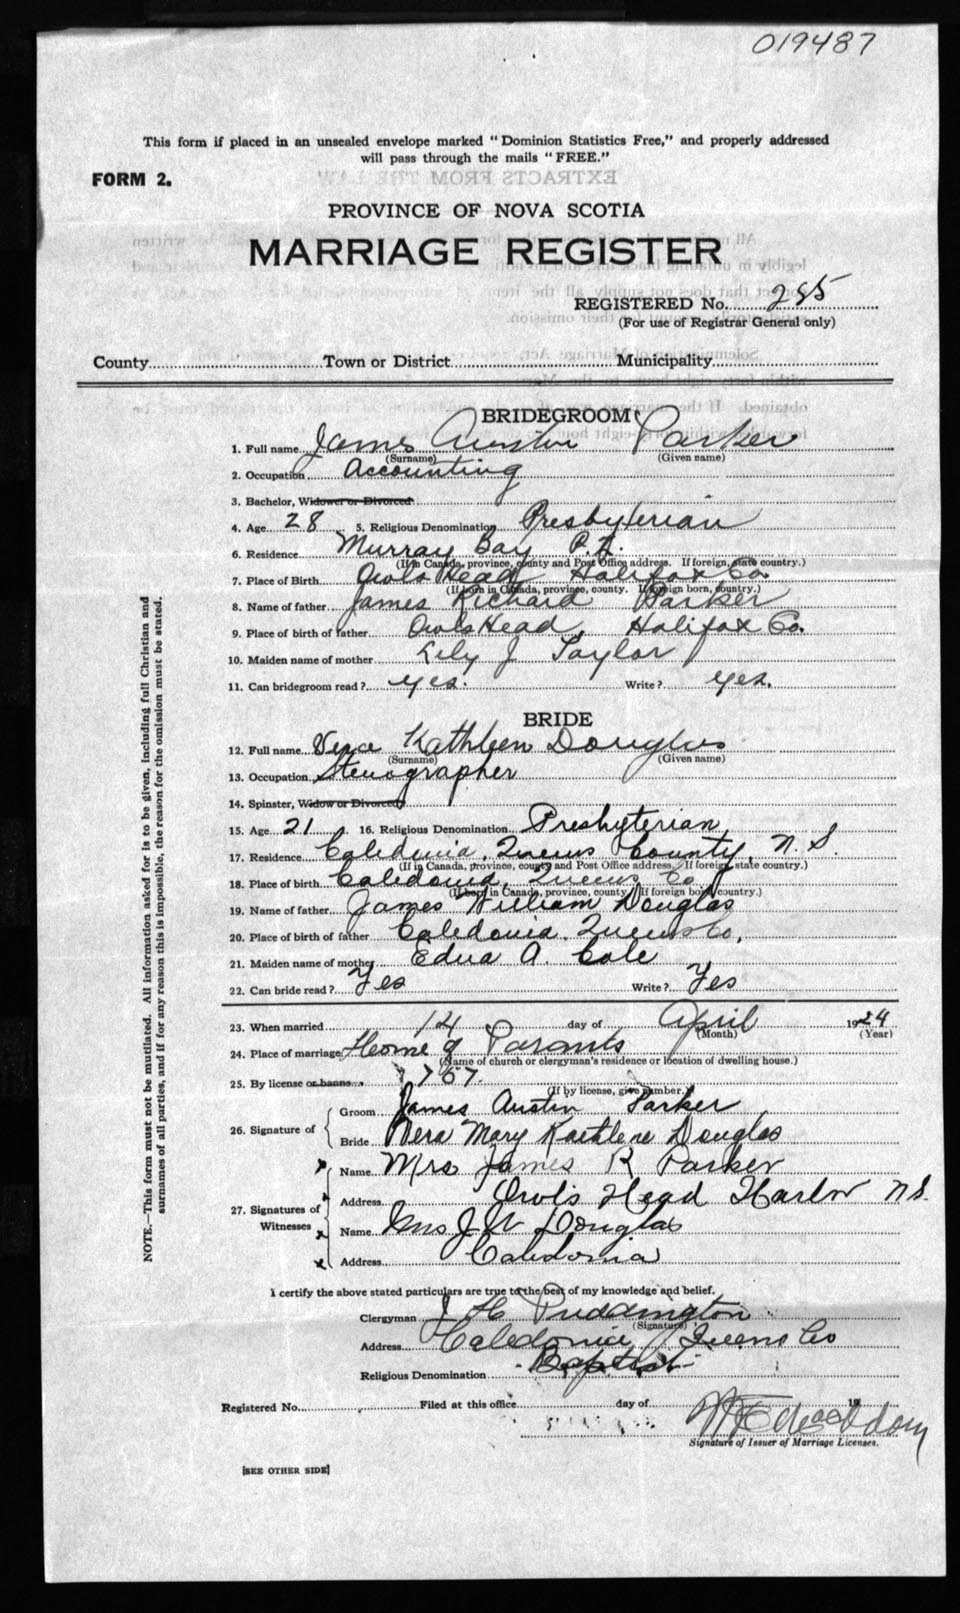 019487
This form if placed in an unsealed envelope marked "Dominion Statistics Free," and properly addressed
will pass through the mails "FREE."
FORM 2.
PROVINCE OF NOVA SCOTIA
MARRIAGE REGISTER
REGISTERED No. 285
(For use of Registrar General only)
County Town or District Municipality
BRIDEGROOM
1. Full name James Austin Parker
(Surname) (Given name)
2. Occupation Accounting
3. Bachelor, Widower or Divorced
4. Age 28 5. Religious Denomination Presbyterian
6. Residence Murray Bay P.Q.
(If in Canada, province, county and Post Office address. If foreign, state country.)
7. Place of Birth Owls Head Halifax Co.
(If born in Canada, province, county. If foreign born, country.)
8. Name of father James Richard Parker
9. Place of birth of father Owls Head, Halifax Co.
10. Maiden name of mother Lily J Taylor
11. Can bridegroom read? yes. Write? yes.
BRIDE
12. Full name Vera Kathleen Douglas
(Surname) (Given name)
13. Occupation Stenographer
14. Spinster, Widow or Divorced
15. Age 21 16. Religious Denomination Presbyterian
17. Residence Caledonia, Queens County, N. S.
(If in Canada, province, county and Post Office address. If foreign, state country.)
18. Place of birth Caledonia, Queens Co
(If born in Canada, province, county. If foreign born, country.)
19. Name of father James William Douglas
20. Place of birth of father Caledonia, Queens Co,
21. Maiden name of mother Edna A. Cole
22. Can bride read? Yes Write? Yes
23. When married 14 day of April 1924
(Month) (Year)
24. Place of marriage Home of Parents
(Name of church or clergyman's residence or location of dwelling house.)
25. By license or banns 767.
(If by license, give number.)
26. Signature of
Groom James Austin Parker
Bride Vera Mary Kathlene Douglas
27. Signatures of Witnesses
Name Mrs James R Parker
Address Owls Head Harbor N.S.
Name Mrs J W Douglas
Address Caledonia
I certify the above stated particulars are true to the best of my knowledge and belief.
Clergyman J H Puddington
(Signature)
Address Caledonia Queens Co
Religious Denomination Baptist
Registered No. Filed at this office day of 19
Signature of Issuer of Marriage Licenses.
[SEE OTHER SIDE]
NOTE.—This form must not be mutilated. All information asked for is to be given, including full Christian and
surnames of all parties, and if for any reason this is impossible, the reason for the omission must be stated.